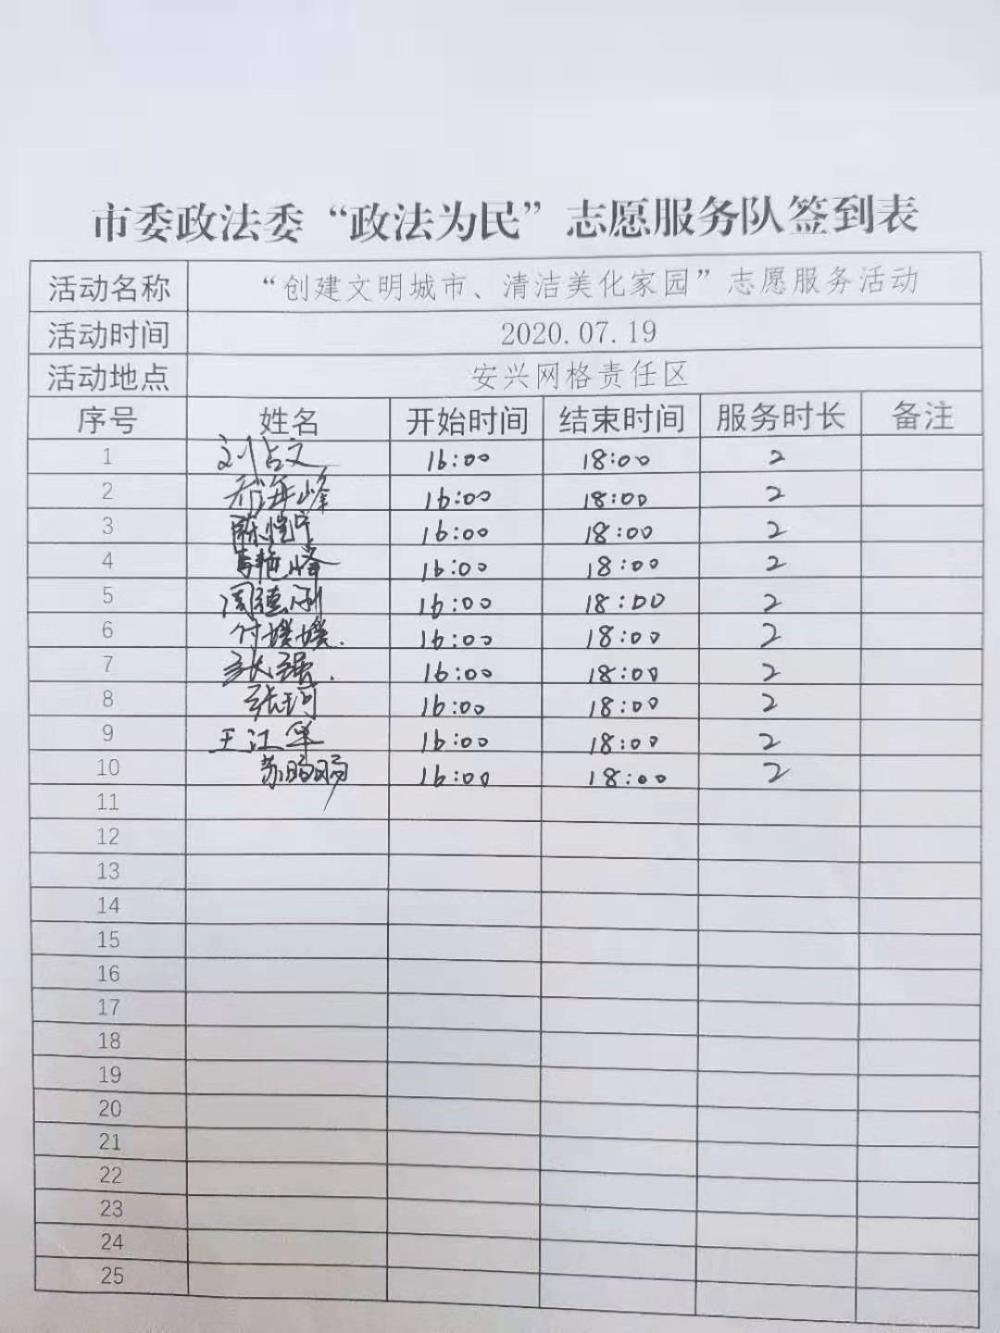 市委政法委“政法为民”志愿服务队签到表
活动名称 “创建文明城市、清洁美化家园”志愿服务活动
活动时间 2020.07.19
活动地点 安兴网格责任区
序号 姓名 开始时间 结束时间 服务时长 备注
1 刘占文 16:00 18:00 2
2 海峰 16:00 18:00 2
3 陈恺宁 16:00 18:00 2
4 马艳峰 16:00 18:00 2
5 周德刚 16:00 18:00 2
6 付璞璞. 16:00 18:00 2
7 张强. 16:00 18:00 2
8 张珂 16:00 18:00 2
9 王江军 16:00 18:00 2
10 苏鹏 16:00 18:00 2
11
12
13
14
15
16
17
18
19
20
21
22
23
24
25